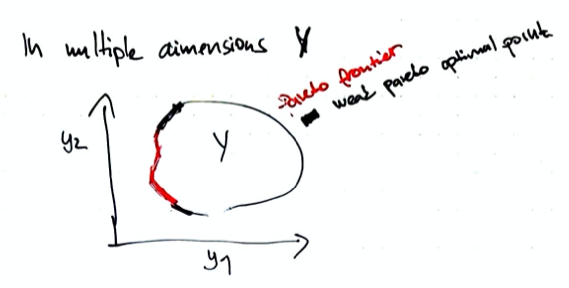 In multiple dimensions Y
Pareto frontier
weak pareto optimal points
y2
Y
y1